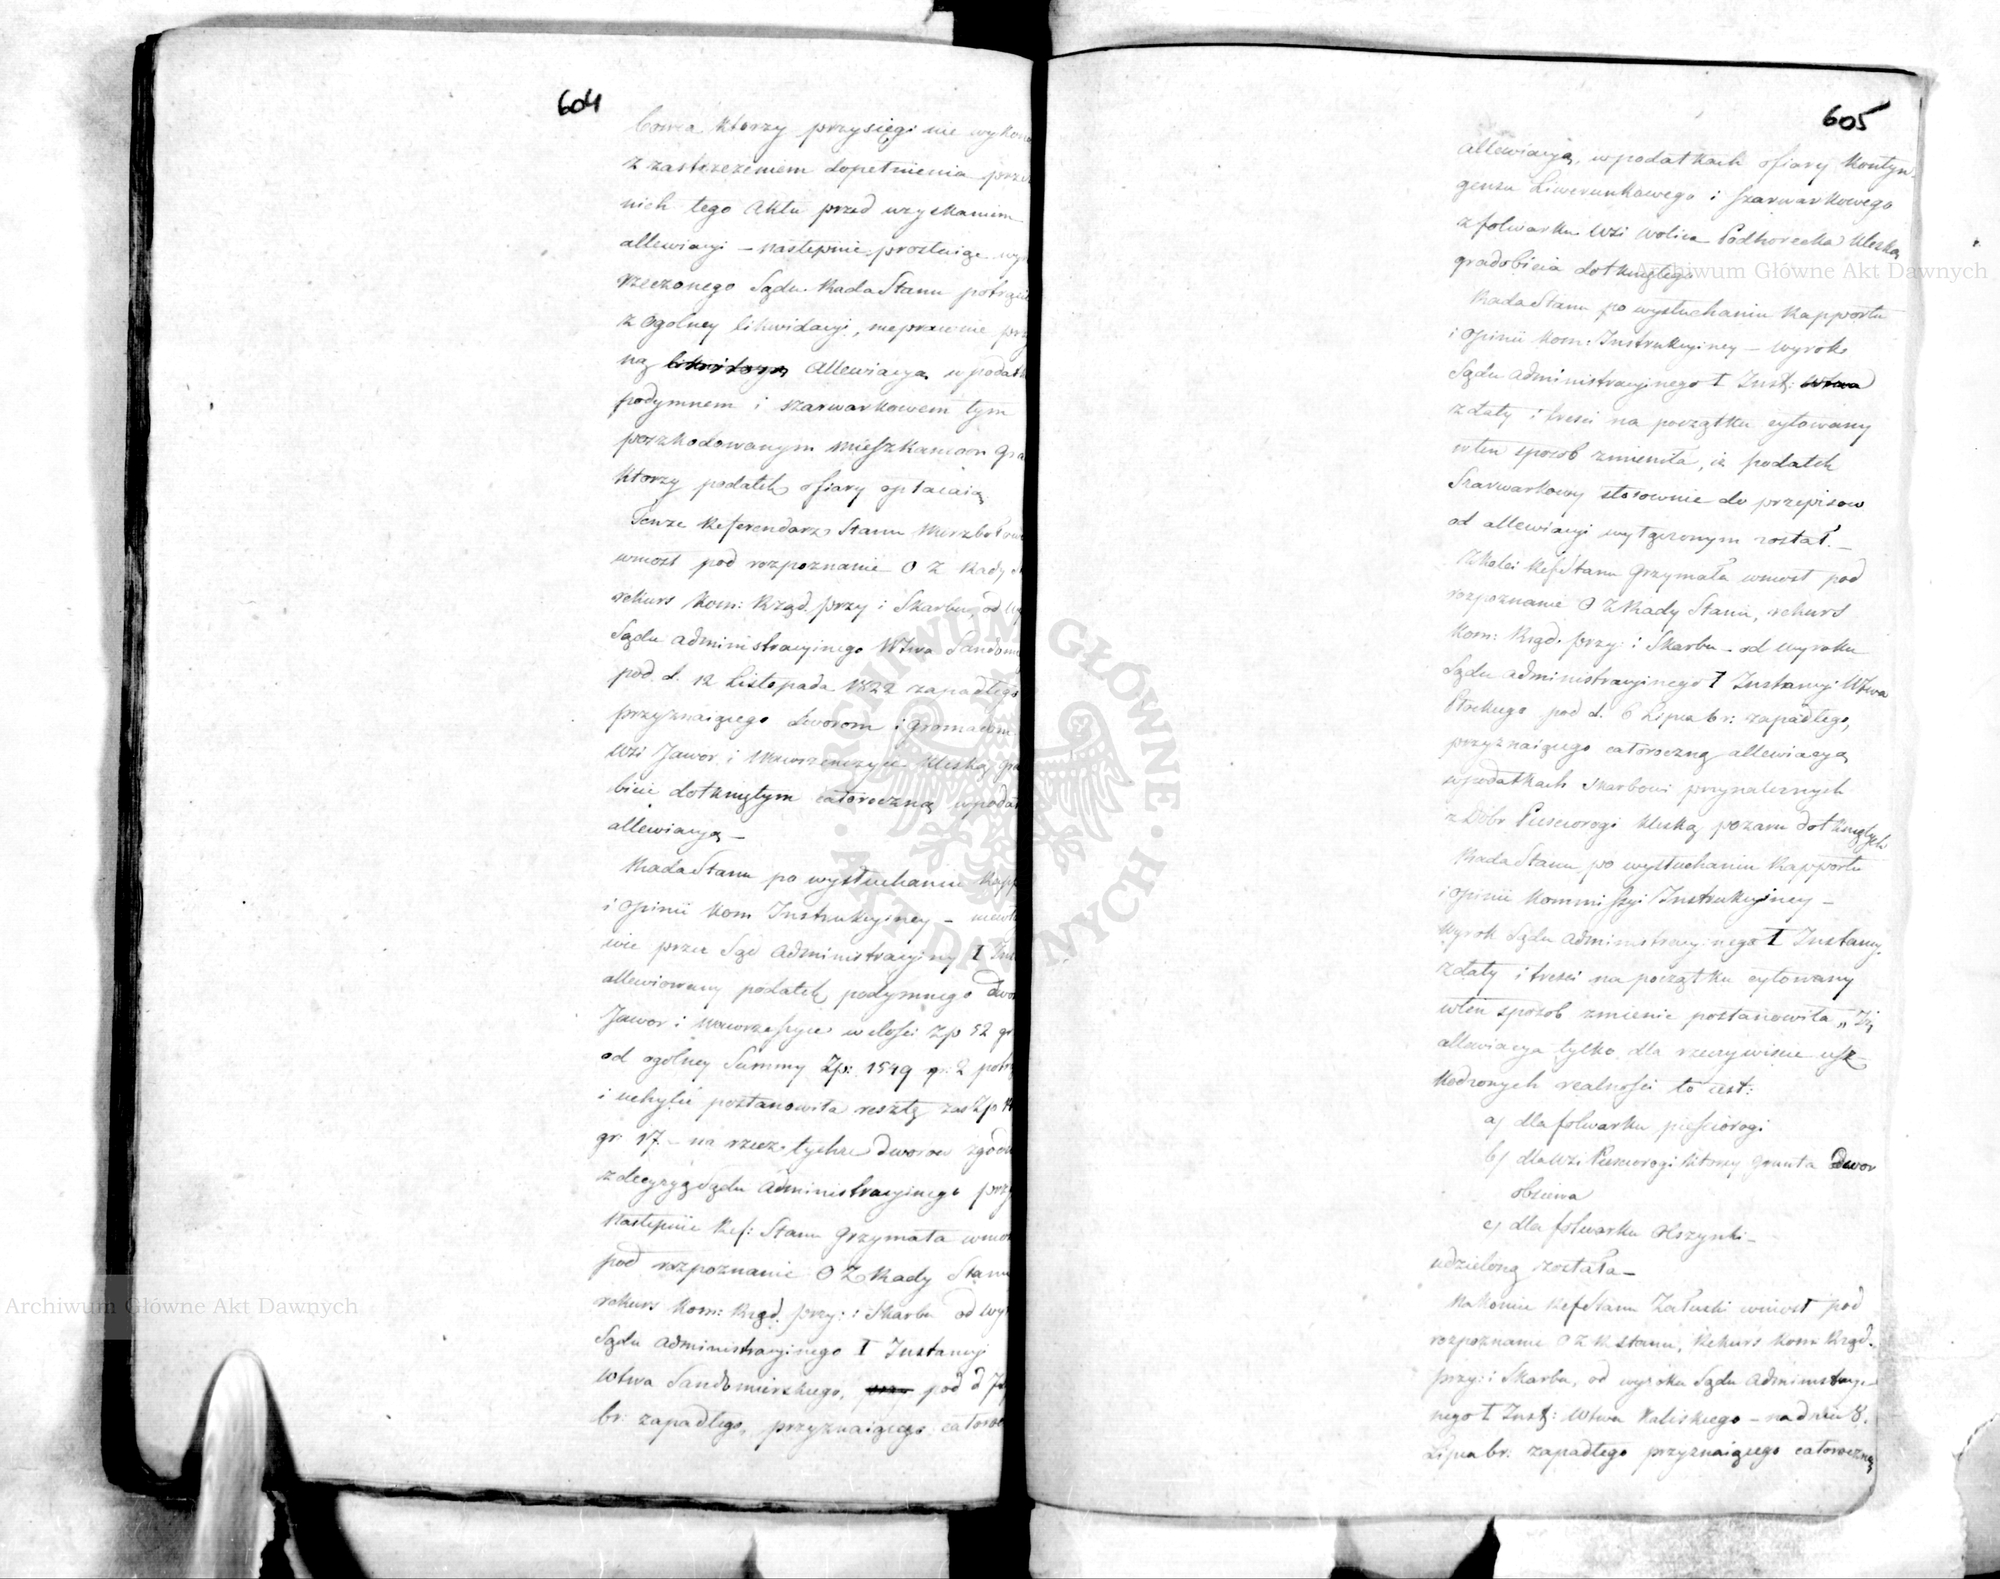 604
ktorzy przysięgi nie wykona
z zastrzezeniem dopełnienia przez
nich tego Aktu przed uzyskaniem
allewiacyi – następnie prostuiąc wy
rzeczonego Sądu. Rada Stanu potrąci
z Ogolney likwidacyi, nieprawnie prz
ną Allewiacyą w podat
podymnem i szarwarkowem tym
poszkodowanym Mieszkancom
ktorzy podatek ofiary opłacaią
Tenze Referendarz Stanu
wniosł pod rozpoznanie O Z Rady
rekurs Kom: Rząd. przy: i Skarbu od
Sądu administracyinego Wtwa Sandom
pod d. 12 Listopada 1822 zapadłego
przyznaiącego dworom i gromadom
Wsi Jawor i klęską gra
bicie dotkniętym całoroczną w podat
allewiacyą –
Rada Stanu po wysłuchaniu Rapp
i Opinii Kom Instrukcyiney –
wie przez Sąd Administracyiny I Ins
allewiowany podatek podymnego dwor
Jawor i w ilości Zp 52 gr
od ogolney Summy Zp: 1549 gr: 2 potrą
i uchylić postanowiła resztę zaś Zp
gr: 17. – na rzecz tychze dworow zgod
z decyzyą Sądu Administracyinego przy
Następnie Ref: Stanu Grzymała wnios
pod rozpoznanie O Z Rady Stanu
rekurs Kom: Rząd. przy: i Skarbu od wy
Sądu administracyinego I Instancyi
Wtwa Sandomirskiego, pod d
br: zapadłego, przyznaiącego całorocz
605
allewiacyą, w podatkach ofiary Kontyn-
gensu Liwerunkowego i Szarwarkowego
z folwarku Wsi Wolica Podhorecka klęską
gradobicia dotkniętego
Rada Stanu po wysłuchaniu Rapportu
i Opinii Kom: Instrukcyiney – wyrok
Sądu Administracyinego I Inst: Wtwa
z daty i treści na początku cytowany
w ten sposob zmieniła, iż podatek
Szarwarkowy stosownie do przepisow
od allewiacyi wyłączonym został. –
Z kolei Ref Stanu Grzymała wniosł pod
rozpoznanie O Z Rady Stanu, rekurs
Kom: Rząd. przy: i Skarbu – od wyroku
Sądu administracyinego I Instancyi Wtwa
Płockiego pod d. 6 Lipca br: zapadłego,
przyznaiącego całoroczną allewiacyą
w podatkach Skarbowi przynależnych
z Dobr Pieściorogi klęską pozaru dotkniętych
Rada Stanu po wysłuchaniu Rapportu
i opinii Kommissyi Instrukcyiney –
Wyrok Sądu Administracyinego I Instancyi
z daty i treści na początku cytowany
w ten sposob zmienic postanowiła „Iż
allewiacya tylko dla rzeczywiście usz
kodzonych realności to iest:
a) dla folwarku pieściorogi
b) dla Wsi Pieściorogi ktorey grunta Dwor
obsiewa
c) dla folwarku Olszynki –
udzieloną została –
Nakoniec Ref Stanu Załuski wniosł pod
rozpoznanie O Z R Stanu, Rekurs Kom: Rząd.
przy: i Skarbu, od wyroku Sądu Administracyi-
nego I Inst: Wtwa Kaliskiego – na dniu 8.
Lipca br: zapadłego przyznaiącego całoroczną
Archiwum Główne Akt Dawnych
Archiwum Główne Akt Dawnych
ARCHIWUM GŁÓWNE AKT DAWNYCH